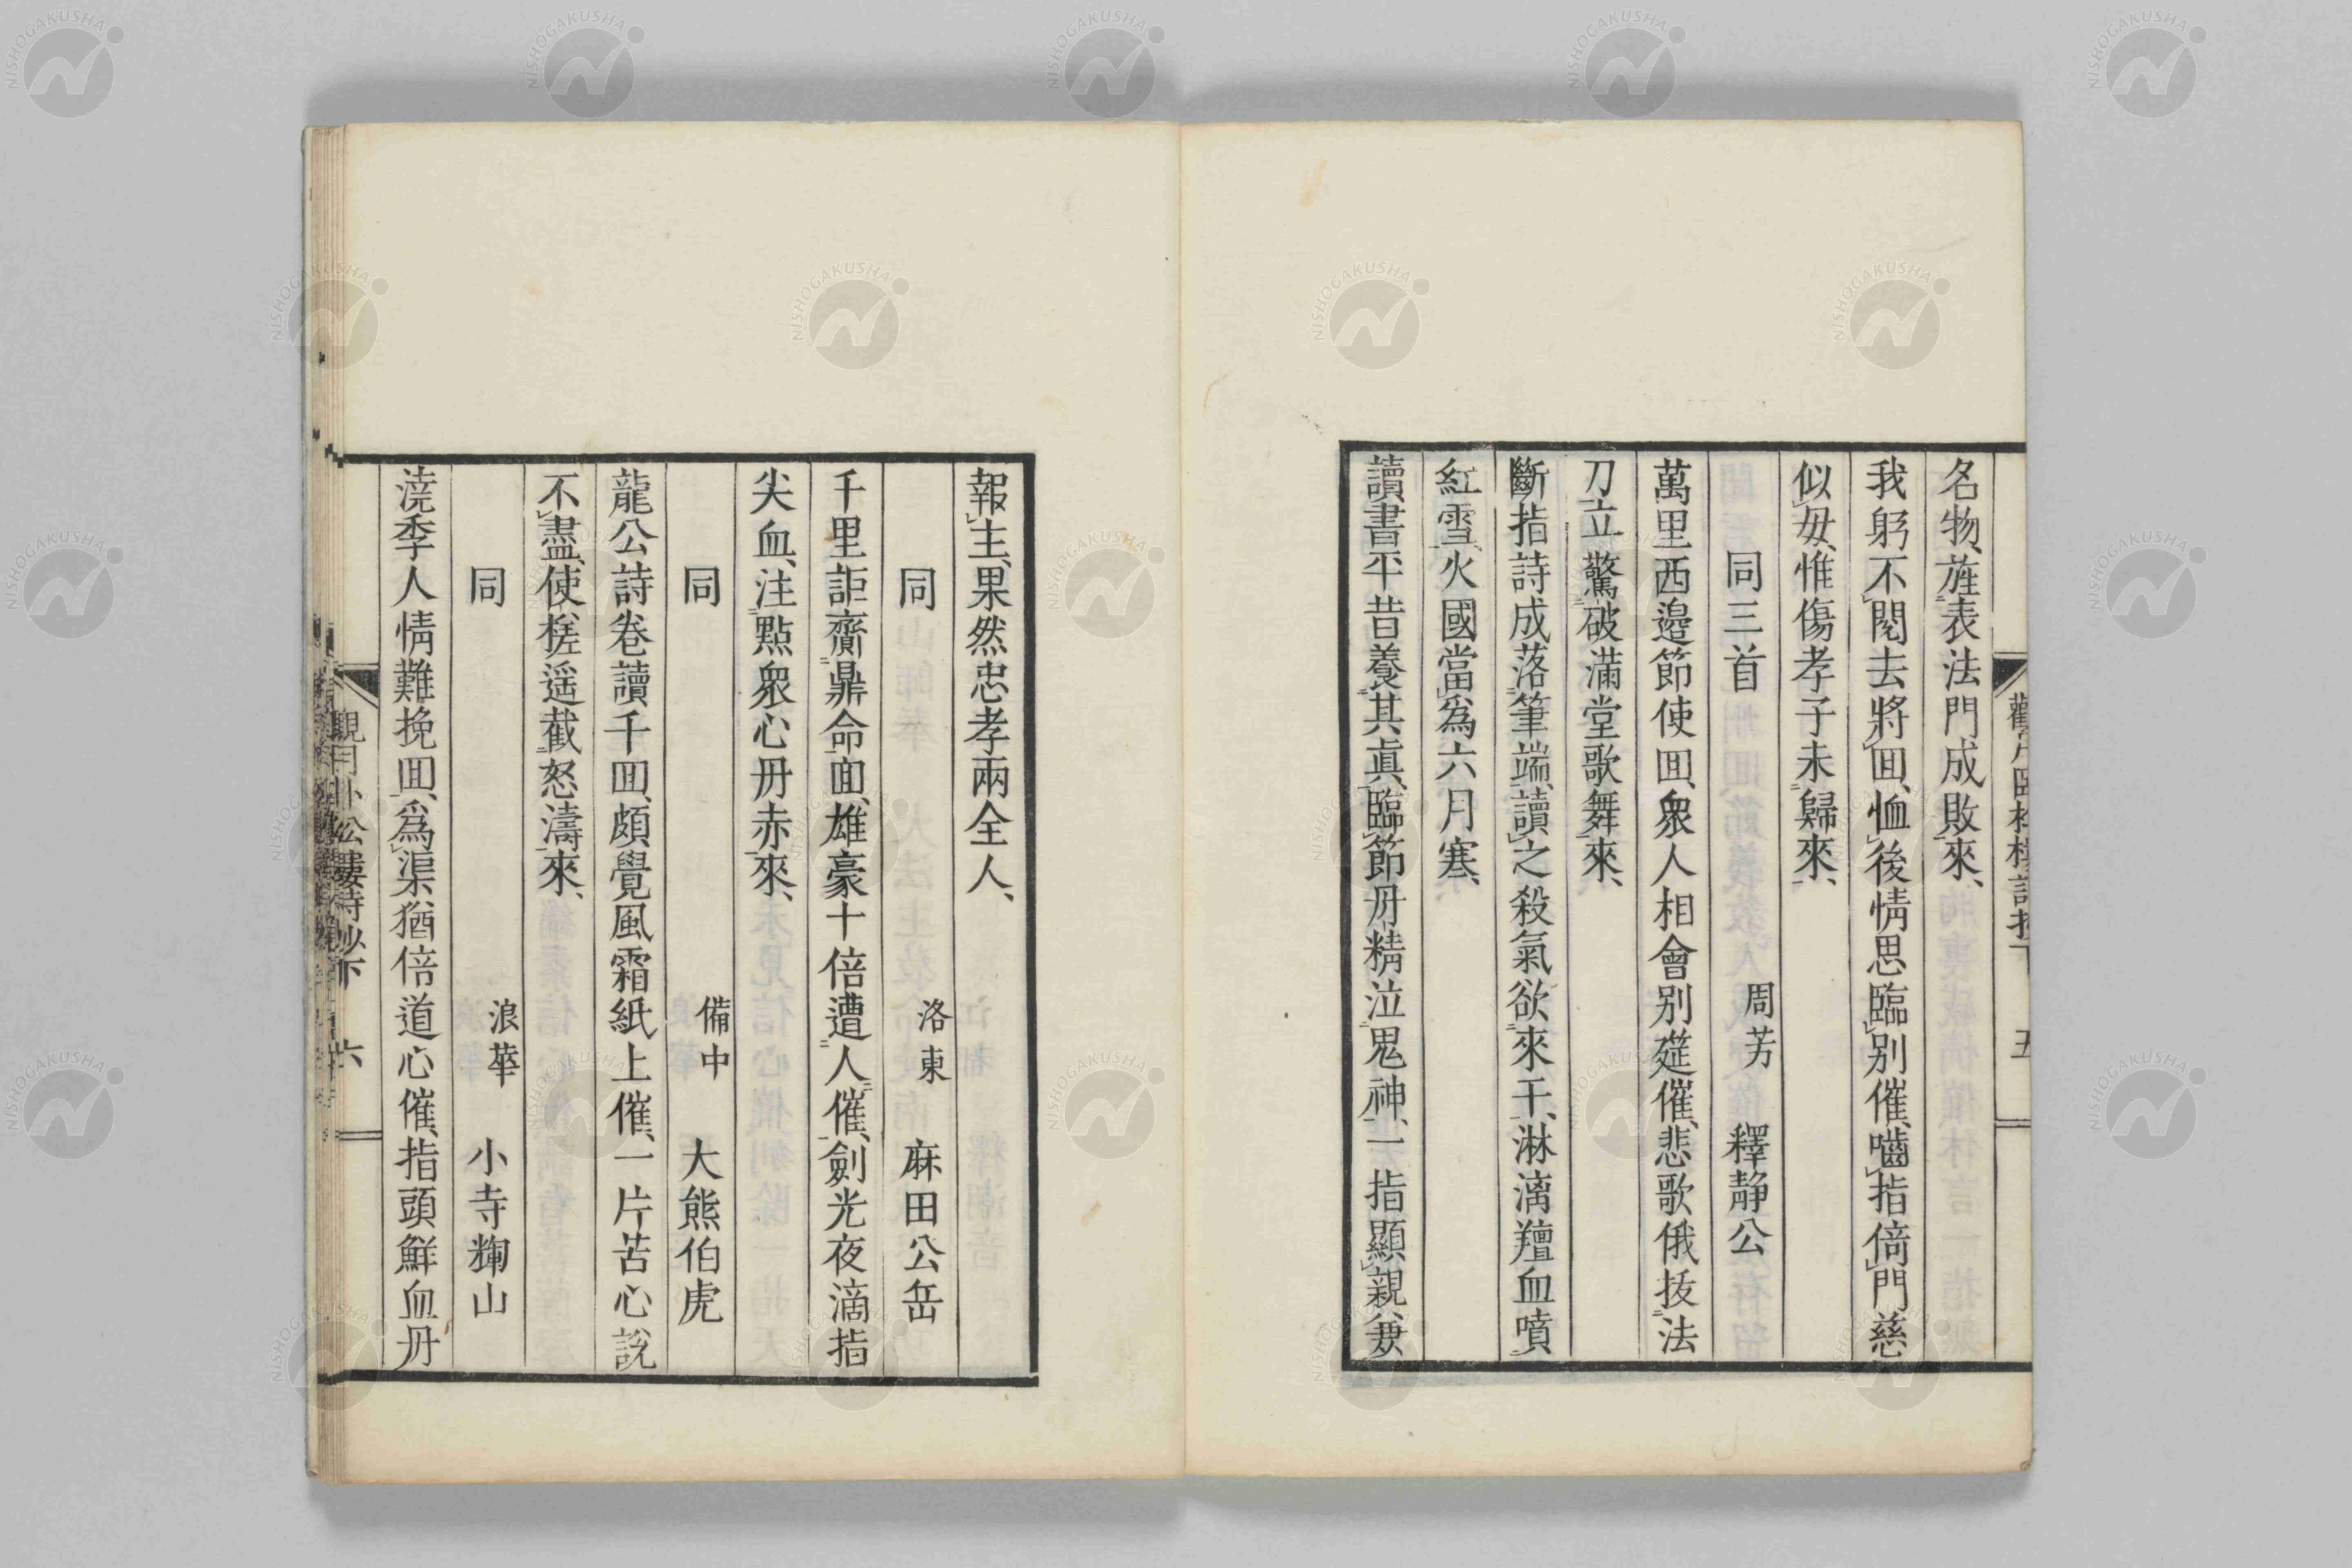 名物、旌表法門成敗來、
我躬不閱去將囬、恤後情思臨別催、嚙指倚門慈
似毋、惟傷孝子未歸來、
同三首　周芳　釋靜公
萬里西邉節使囬、衆人相會別筵催、悲歌俄拔法
刀立、驚破滿堂歌舞來、
斷指詩成落筆端、讀之殺氣欲來干、淋漓羶血噴
紅雪、火國當爲六月寒、
讀書平昔養其眞、臨節丹精泣鬼神、一指顯親兼
五
報主、果然忠孝兩全人、
同　洛東　麻田公岳
千里詎齎鼎命囬、雄豪十倍遭人催、劍光夜滴指
尖血、注點衆心丹赤來、
同　備中　大熊伯虎
龍公詩卷讀千囬、頗覺風霜紙上催、一片苦心說
不盡、使槎遥截怒濤來、
同　浪華　小寺輞山
澆季人情難挽囬、爲渠猶倍道心催、指頭鮮血丹
六
NISHOGAKUSHA